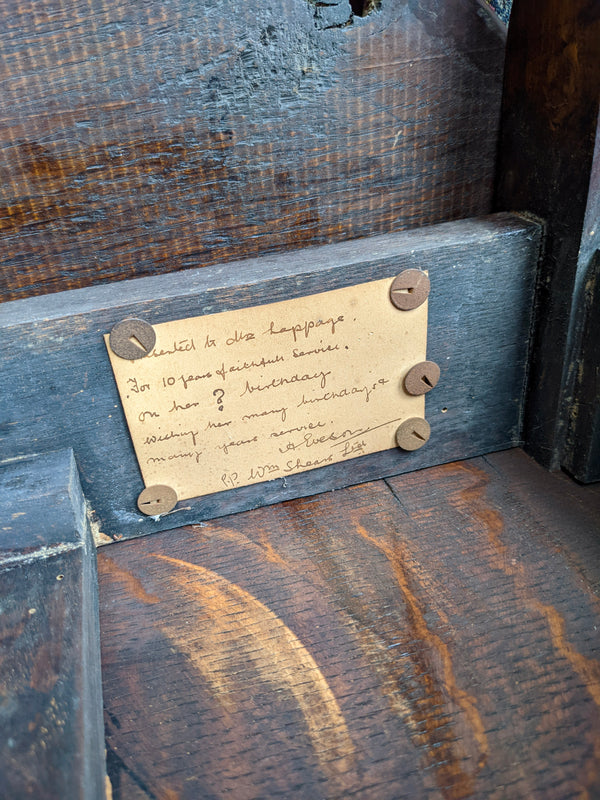 sented to Mrs Lappage.
For 10 years of faithfull service.
on her ? birthday
wishing her many birthdays &
many years service.
A. Eveson
P.P. Wm Shears Ltd